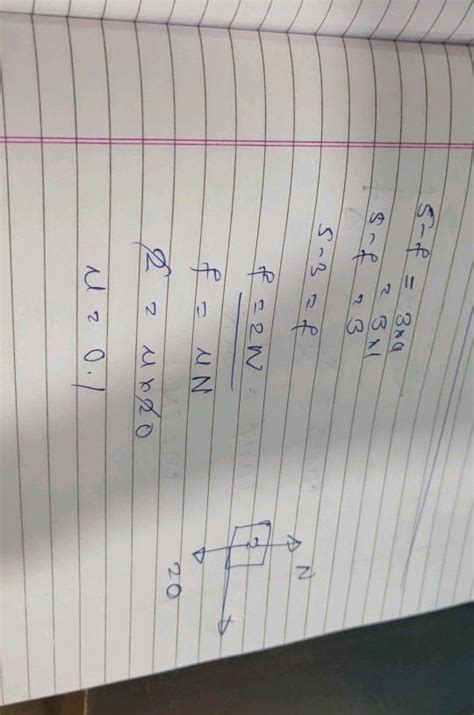 5-f = 3×a
5-f = 3×1
5-f = 3
5-3 = f
f = 2N
f = μN
2 = μ×20
μ = 0.1
N
2
20